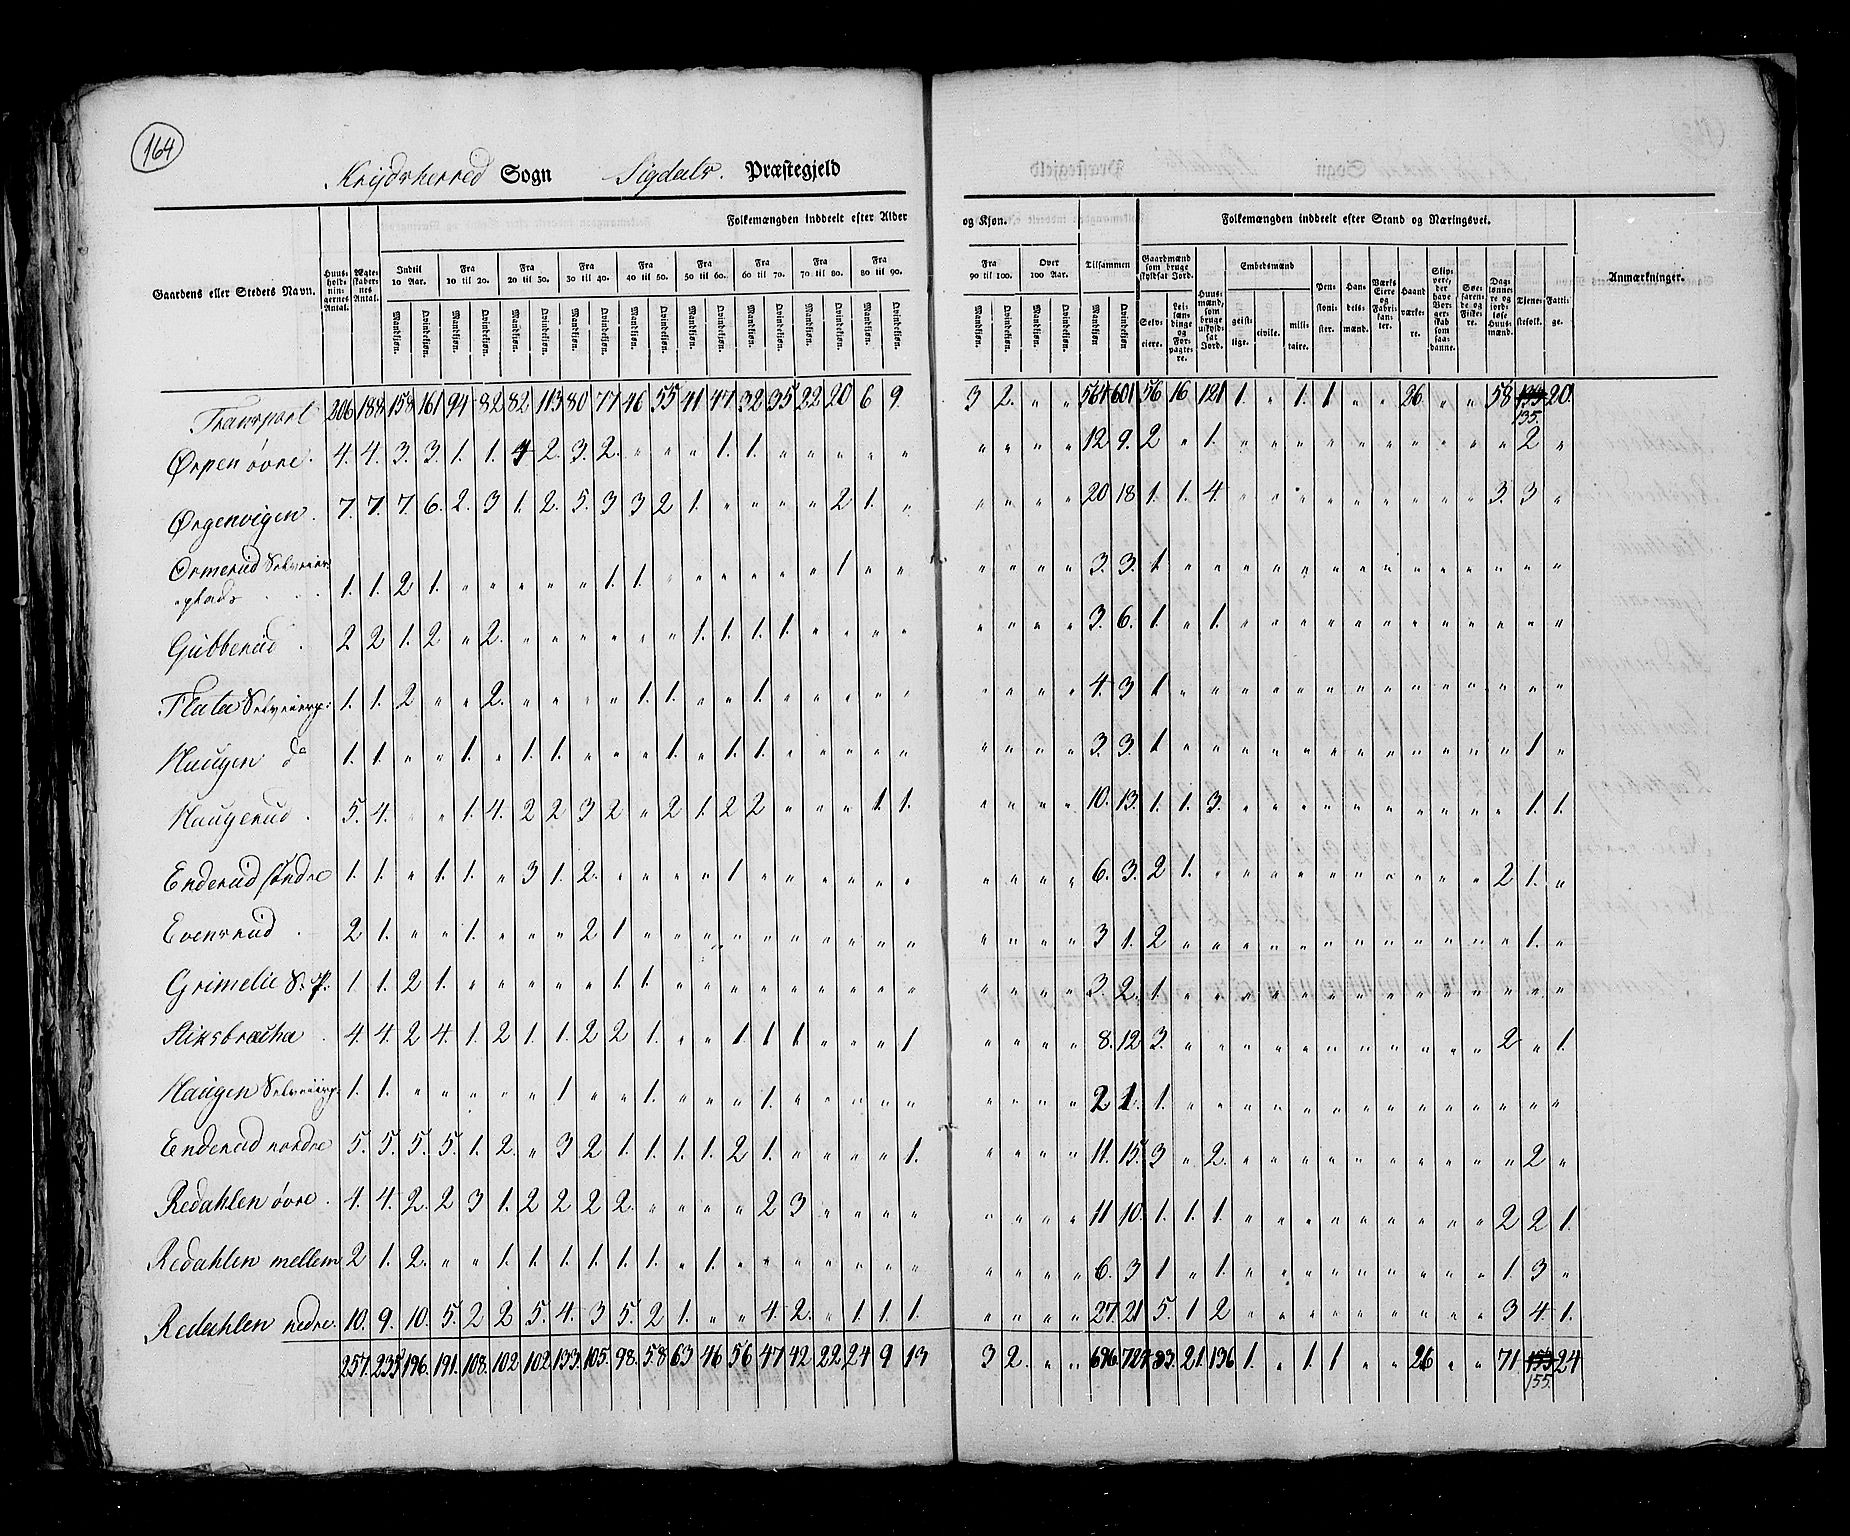 164
Krydsherred Sogn Sigdals. Præstegjeld
Folkemængden inddeelt efter Alder og Kjøn. Folkemængden inddeelt efter Stand og Næringsvei.
Gaardens eller Stedets Navn. Huusholdningernes Antal. Ægteskabernes Antal. Indtil 10 Aar. Fra 10 til 20. Fra 20 til 30. Fra 30 til 40. Fra 40 til 50. Fra 50 til 60. Fra 60 til 70. Fra 70 til 80. Fra 80 til 90. Fra 90 til 100. Over 100 Aar. Tilsammen Gaardmænd som bruge skyldsat Jord. Huusmænd, som bruge uskyldsat Jord. Embedsmænd Pensionister. Handelsmænd. Værks Eiere og Fabrikanter. Haandværkere. Skippere, der have Borgerskab som saadanne. Søefarende og Fiskere. Daglønnere og jordløse Huusmænd. Tjenestefolk. Fattige. Anmærkninger.
Mandkjøn. Qvindekjøn. Mandkjøn. Qvindekjøn. Mandkjøn. Qvindekjøn. Mandkjøn. Qvindekjøn. Mandkjøn. Qvindekjøn. Mandkjøn. Qvindekjøn. Mandkjøn. Qvindekjøn. Mandkjøn. Qvindekjøn. Mandkjøn. Qvindekjøn. Mandkjøn. Qvindekjøn. Mandkjøn. Qvindekjøn. Mandkjøn. Qvindekjøn. Selveiere. Leilændinge og Forpagtere. geistlige. civile. militaire.
Transport 206 188 158 161 94 82 82 113 80 77 46 55 41 47 32 35 22 20 6 9. 3 2. " " 564 601 56 16 121 1. " 1. 1 " " 26 " " 58 135. 20.
Ørpen øvre. 4. 4. 3. 3. 1. 1. 4 2. 3. 2. " " " 1. 1. " " " " " " " " " 12 9. 2 " 1. " " " " " " " " " " 2 "
Ørgenvigen. 7. 7. 7. 6. 2. 3 1. 2. 5. 3 3 2 1. " " " " 2 1. " " " " " 20 18 1. 1. 4 " " " " " " " " " 3. 3 "
Ormerud Selveier:
plads . . . 1. 1. 2 1. " " " " " 1. 1. " " " " " " 1 " " " " " " 3. 3. 1 " " " " " " " " " " " " " "
Gubberud . 2 2 1. 2 " 2. " " " " " " 1. 1. 1. 1. " " " " " " " " 3. 6. 1. " 1. " " " " " " " " " " " "
Flata Selveierp: 1. 1. 2 " " 2. " " " " 1. 1. " " 1. " " " " " " " " " 4. 3 1 " " " " " " " " " " " " " "
Haugen do 1. 1. " " 1. " 1. 1. " " " 1. " 1. 1. " " " " " " " " " 3. 3. 1 " " " " " " " " " " " " 1 "
Haugerud . 5. 4. " " 1. 4. 2 2 3 2 " 2 1. 2 2 " " " 1. 1. " " " " 10. 13. 1. 1. 3. " " " " " " " " " " 1. 1.
Enderud søndre 1. 1. " 1. 1. " 3 1. 2. " " " " 1 " " " " " " " " " " 6. 3. 2 1. " " " " " " " " " " 2 1. "
Evensrud . 2 1. " " 1. " " " 2 1 " " " " " " " " " " " " " " 3 1. 2 " " " " " " " " " " " " 1. "
Grimelie S. P: 1 1. 2 1. " " " " " 1. 1. " " " " " " " " " " " " " 3. 2. 1 " " " " " " " " " " " " " "
Stiksbrætha . 4. 4. 2 4. 1. 2 1. 1. 2 2 1. " " 1. 1. 1 " " " 1 " " " " 8. 12 3. " " " " " " " " " " " 2 " 1.
Haugen Selveierp. 1. 1. " " " " " 1 " " 1. " " " 1. " " " " " " " " " 2 1. 1. " " " " " " " " " " " " " "
Enderud nordre 5. 5. 5. 5. 1. 2. " 3 2 1. 1. 1. 1. 2 1. " " " " 1. " " " " 11. 15. 3 " 2. " " " " " " " " " " 2 "
Redahlen øvre . 4. 4. 2. 2 3 1. 2 2 2 2. " " " " 2 3 " " " " " " " " 11 10. 1. 1. 1. " " " " " " " " " 2 2 1.
Redahlen mellem 2 1. 2. " " 1. 1. 1. 1. 1. 1. " 1. " " " " " " " " " " " 6. 3 1 " 1. " " " " " " " " " 1. 3 "
Redahlen nedre. 10. 9. 10. 5. 2 2 5. 4. 3 5. 2 1. " " 4. 2. " 1. 1. 1. " " " " 27. 21 5. 1 2 " " " " " " " " " 3 4. 1.
257. 235 196. 191. 108. 102. 102. 133. 105. 98. 58. 63 46 56. 47 42. 22 24 9 13 3 2. " " 696 724 83. 21. 136 1. " 1. 1 " " 26 " " 71. 155. 24